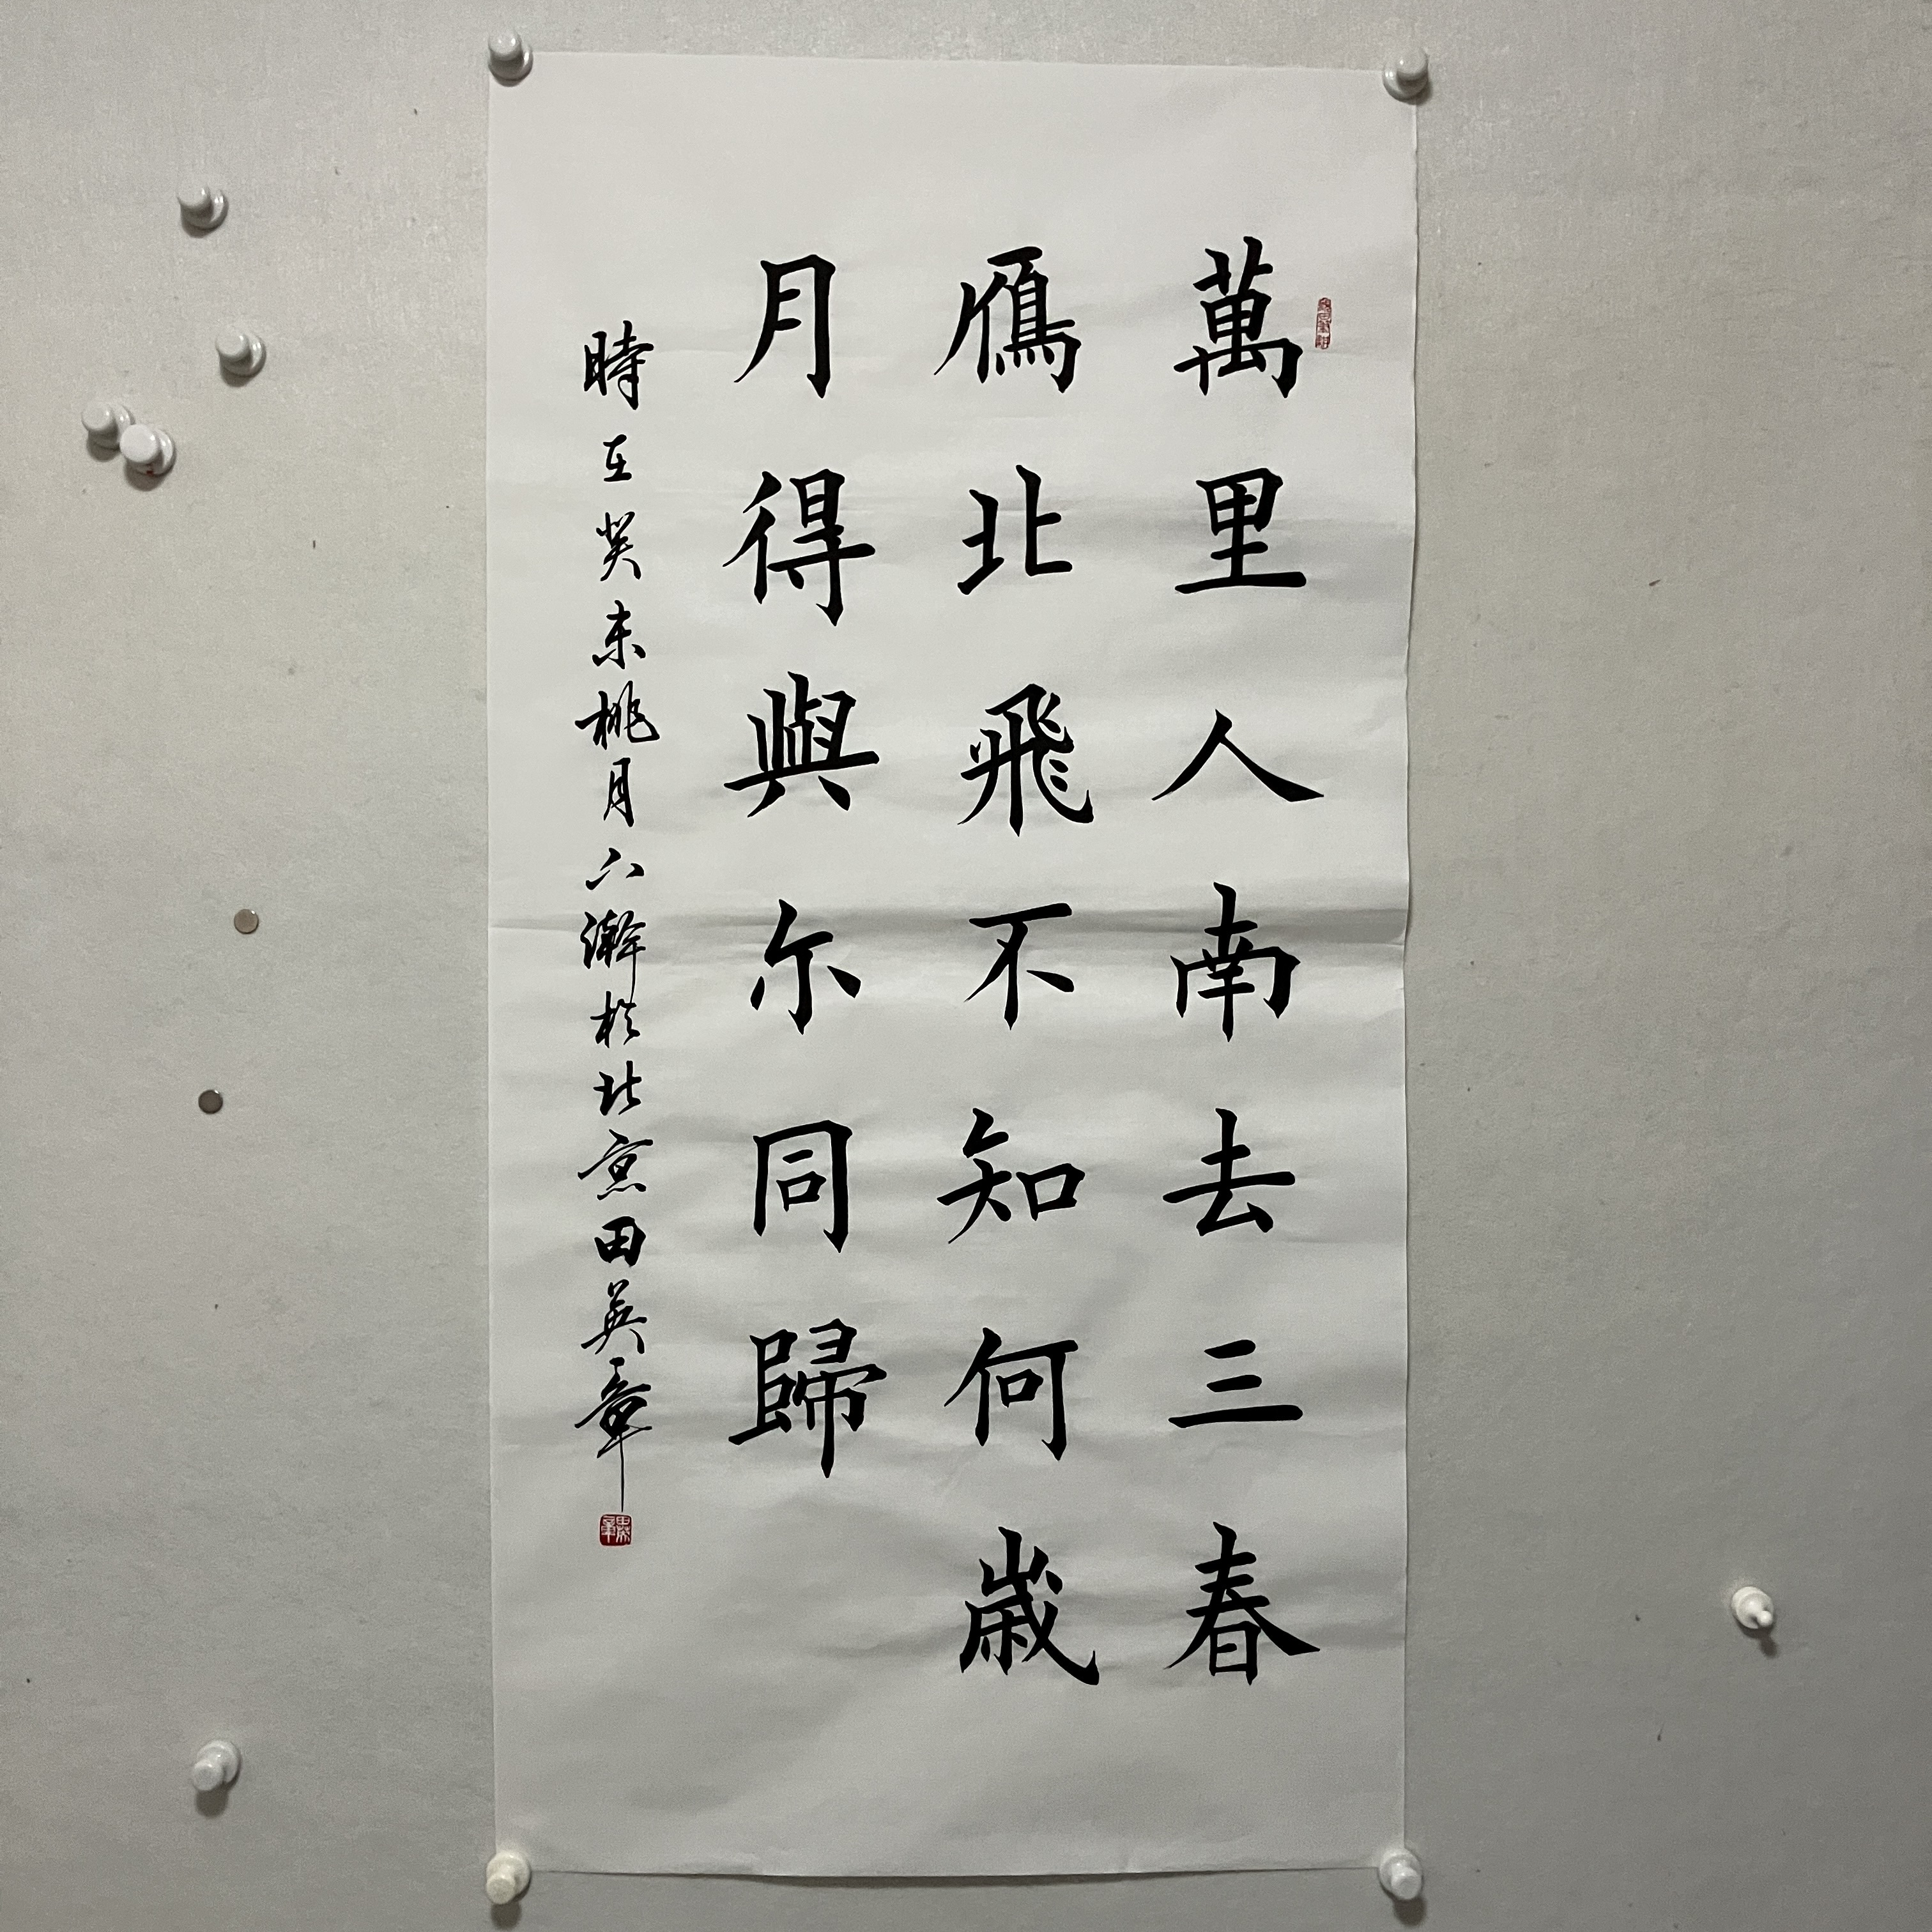 萬里人南去三春
鴈北飛不知何歲
月得與尔同歸
時在癸未桃月六澣於北京田英章